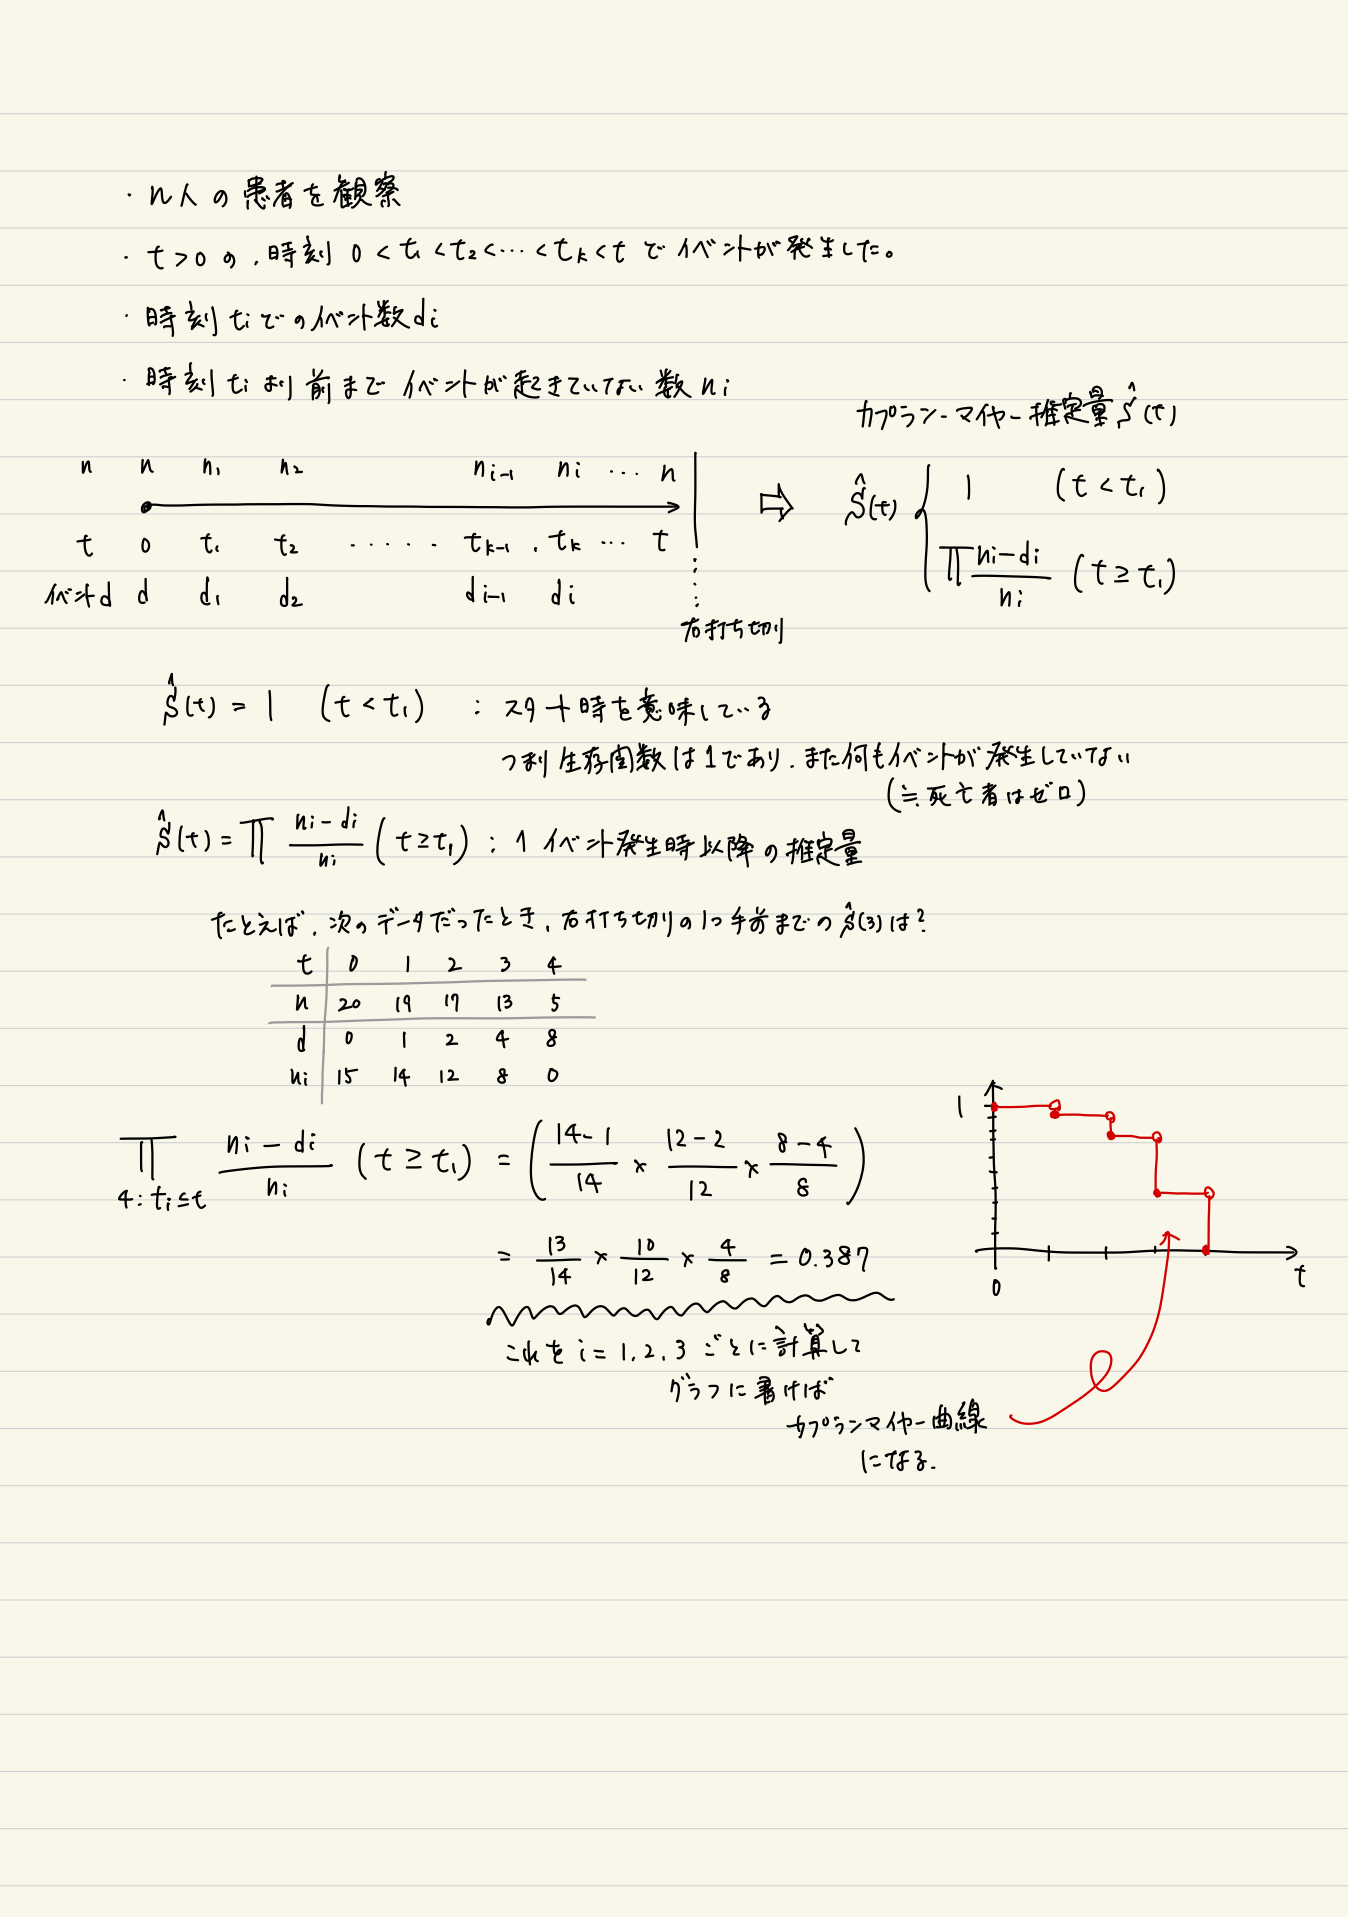 ・n人の患者を観察
・t>0の、時刻 0<t₁<t₂<…<tₖ<t でイベントが発生した。
・時刻 tᵢ でのイベント数 dᵢ
・時刻 tᵢ より前までイベントが起きていない数 nᵢ
カプラン-マイヤー推定量 Ŝ(t)
n n n₁ n₂ nᵢ₋₁ nᵢ … n
t 0 t₁ t₂ …… tₖ₋₁ , tₖ … t
イベントd d d₁ d₂ dᵢ₋₁ dᵢ
右打ち切り
⇨ Ŝ(t) { 1 (t<t₁)
∏ nᵢ-dᵢ/nᵢ (t≥t₁)
Ŝ(t) = 1 (t<t₁) : スタート時を意味している
つまり生存関数は1であり、また何もイベントが発生していない
(≒死亡者はゼロ)
Ŝ(t) = ∏ nᵢ-dᵢ/nᵢ (t≥t₁) : 1イベント発生時以降の推定量
たとえば、次のデータだったとき、右打ち切りの1つ手前までの Ŝ(3)は?
t 0 1 2 3 4
n 20 19 17 13 5
d 0 1 2 4 8
nᵢ 15 14 12 8 0
∏ nᵢ-dᵢ/nᵢ (t≥t₁) = (14-1/14 × 12-2/12 × 8-4/8)
4:tᵢ≤t
= 13/14 × 10/12 × 4/8 = 0.387
これを i=1,2,3 ごとに計算して
グラフに書けば
カプランマイヤー曲線
になる.
1
0
t